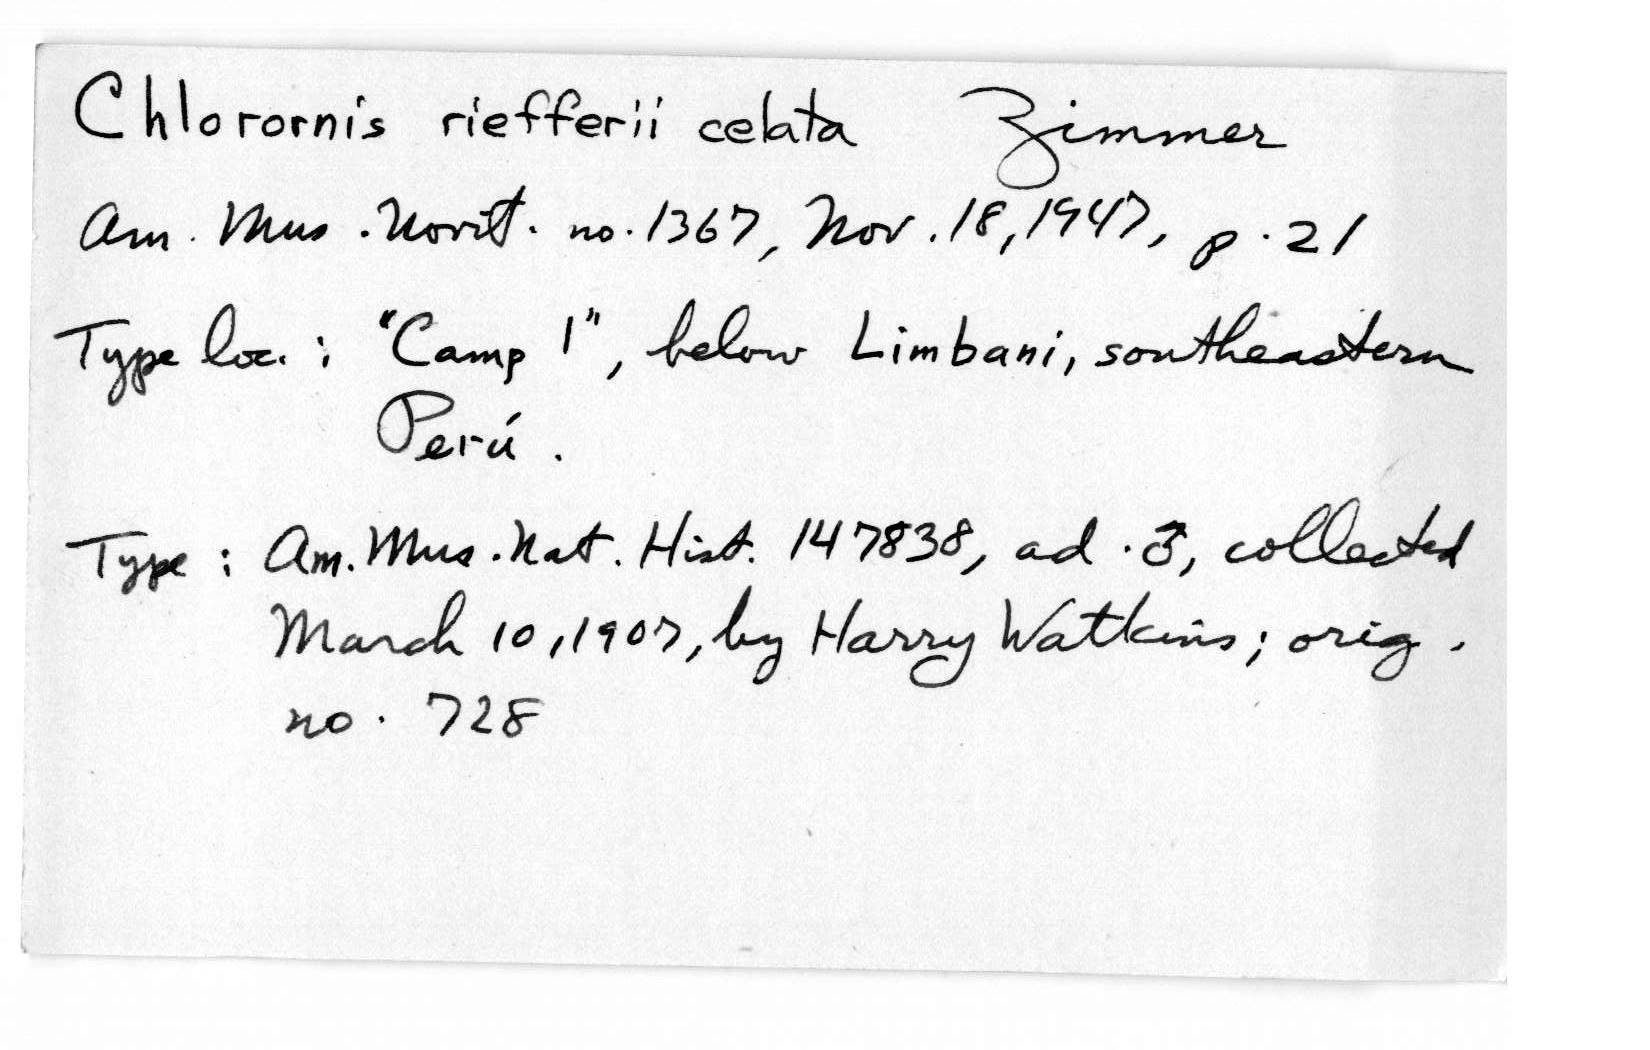 Chlorornis riefferii celata Zimmer
Am. Mus. Novit. no. 1367, Nov. 18, 1947, p. 21
Type loc.: "Camp 1", below Limbani, southeastern
Perú.
Type: Am. Mus. Nat. Hist. 147838, ad. ♂, collected
March 10, 1907, by Harry Watkins; orig.
no. 728